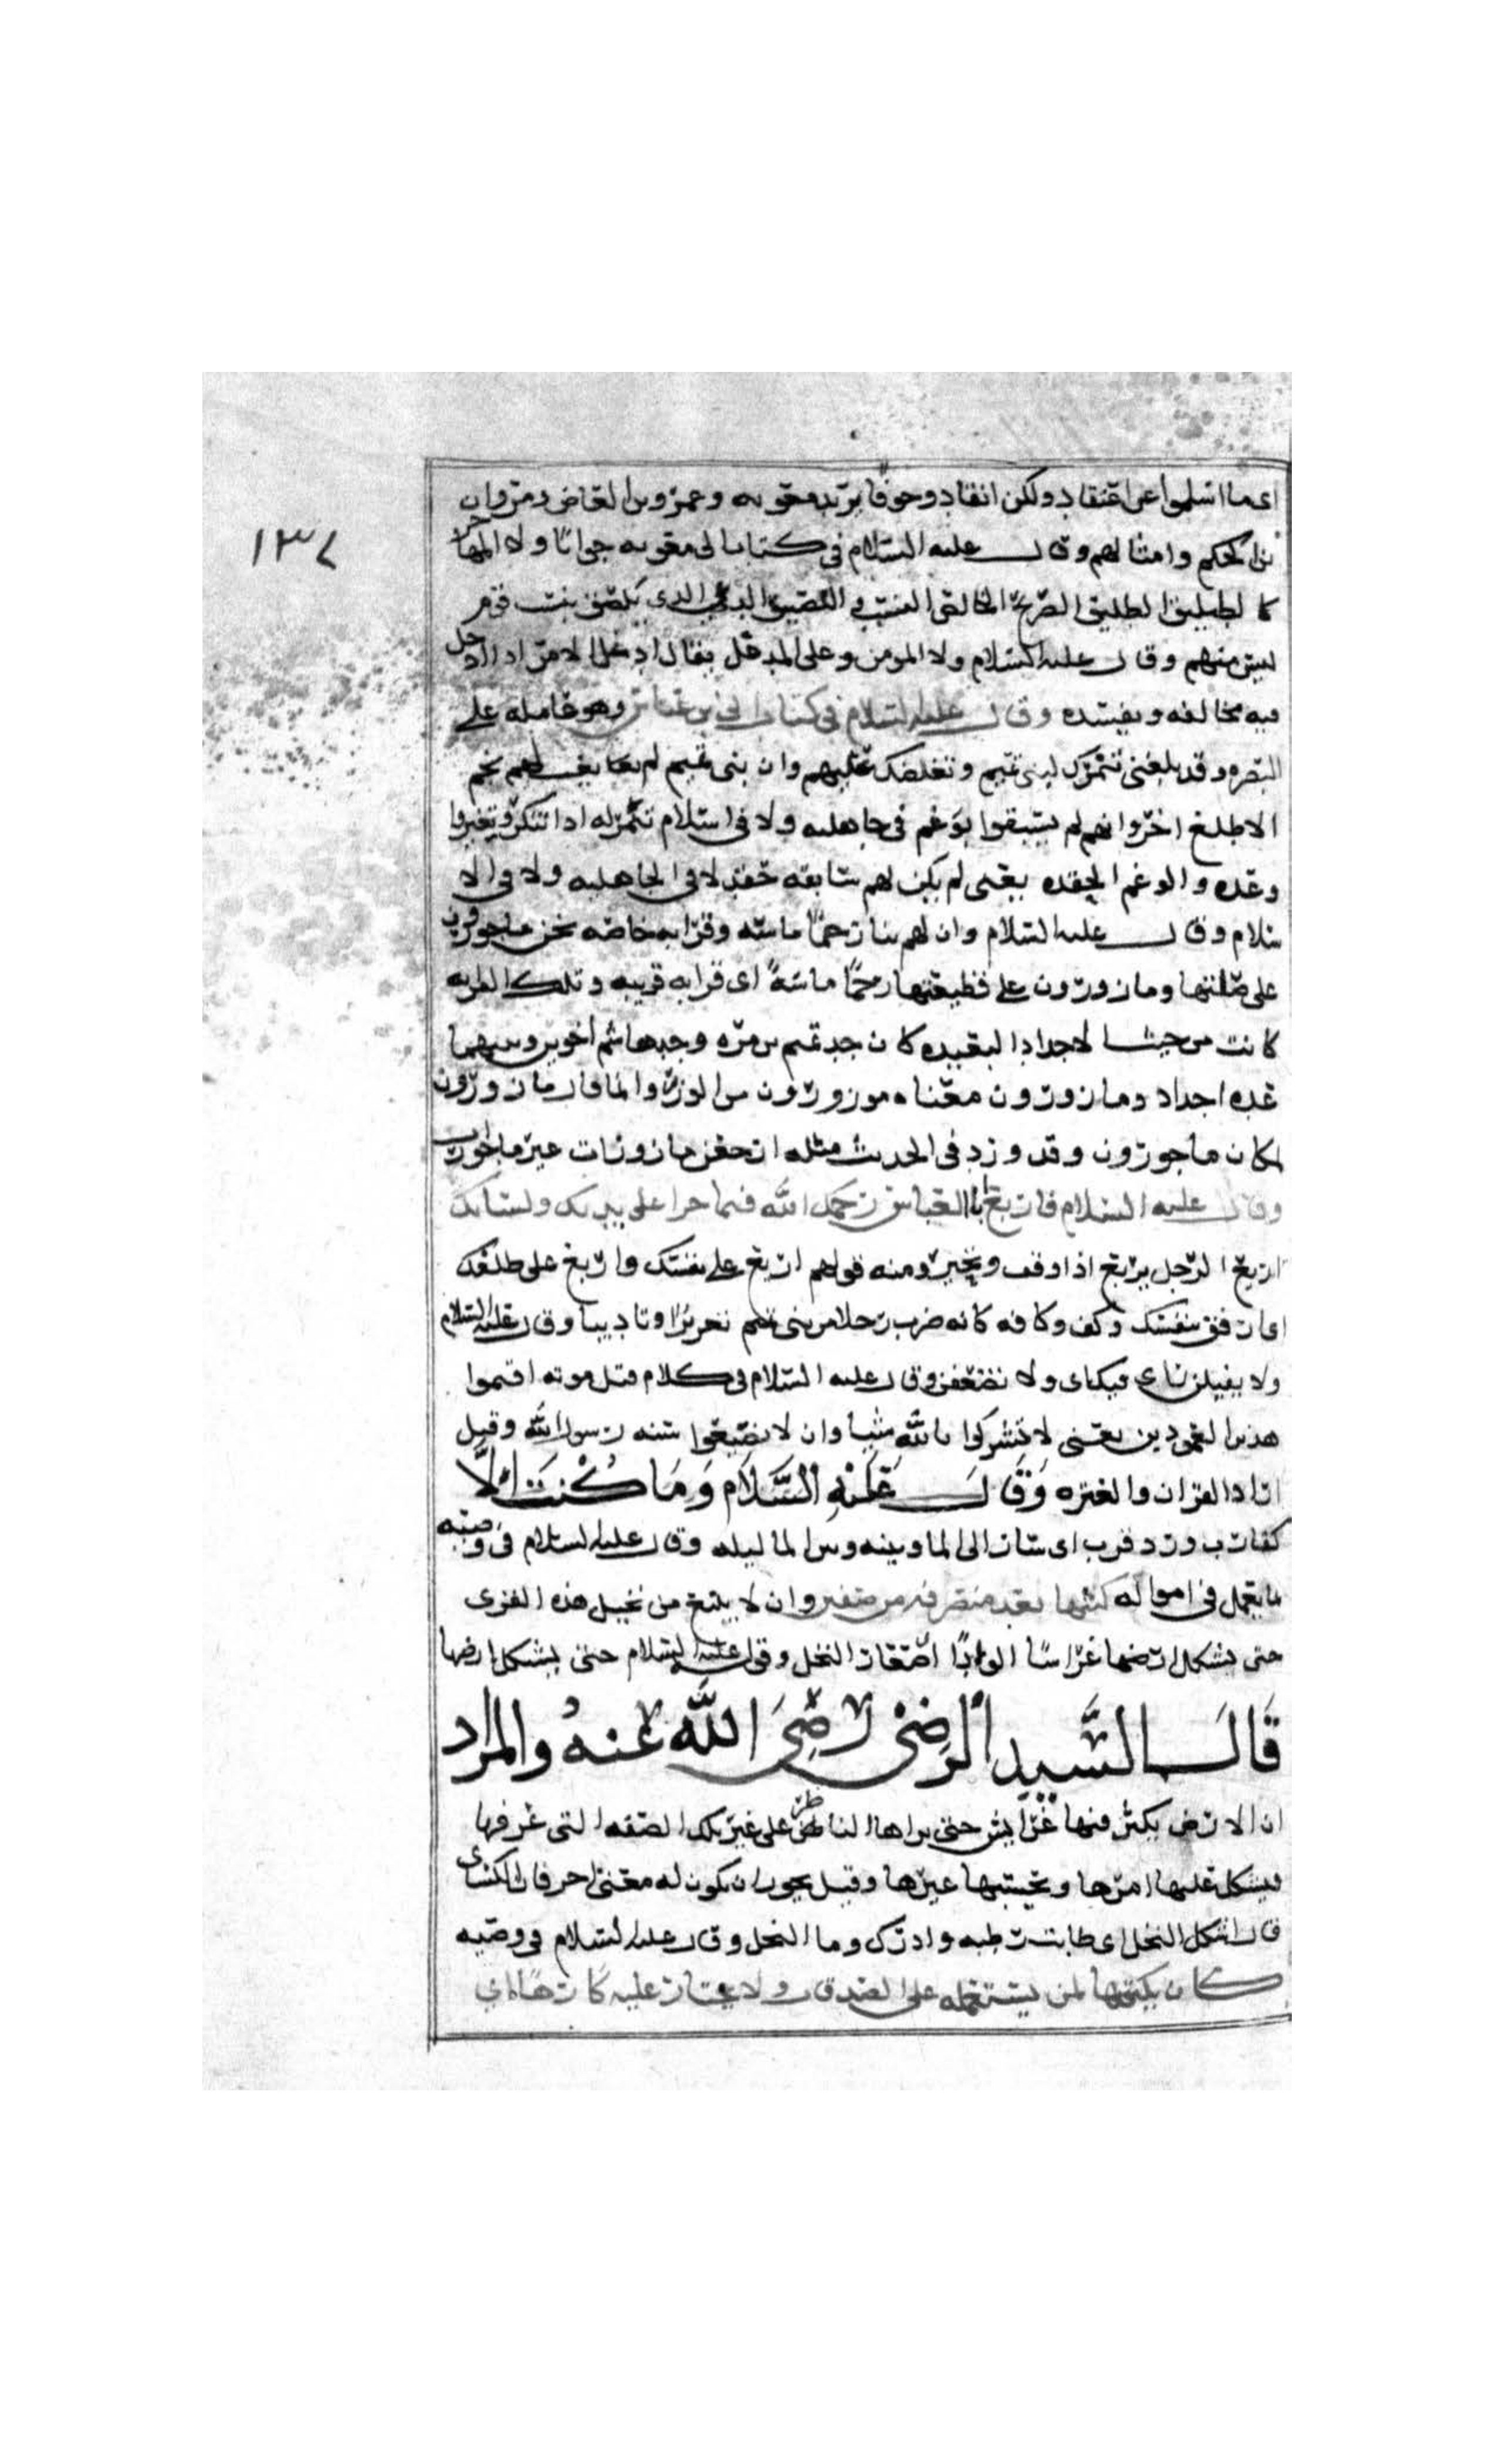 اى ما اسلموا عن اعتقاد ولكن انقاد وخوفا يريد معويه وعمرو بن العاص ومروان
بن الحكم وامثالهم وقال عليه السلام فى كتاب الى معويه جوابا ولا المهاجر
كالطليق الطليق الصريح الخالص النسب واللصيق الدعى الذى يلصق بنسب قوم
ليس منهم وقال عليه السلام ولا المومن وعلى المدغل يقال ادغل الامر اذا ادخل
فيه مخالفه ويفسده وقال عليه السلام فى كتاب الى بن عباس وهو عامله على
البصره وقد بلغنى تنمرك لبنى تميم وتغلظك عليهم وان بنى تميم لم يغايب لهم نجم
الا طلع اخر وانهم لم يسبقوا بوغم فى جاهليه ولا فى اسلام تنمر له اذا تنكر وتغير وا
وعده والوغم الحقده يعنى لم يكن لهم سابقه حقد لا فى الجاهليه ولا فى الا
سلام وقال عليه السلام وان لهم بنا رحما ماسه وقرابه خاصه نحن ماجورون
على صلتها ومازورون على قطيعتها رحما ماسة اى قرابه قريبه وتلك القرابه
كانت من حيث الاجداد البعيده كان جد تميم بن مره وجد هاشم اخوين وبينهما
عده اجداد ومازورون معناه موزورون من الوزر وانما قال مازورون
لمكان ماجورون وقد ورد فى الحديث مثله ارجعن مازورات غير ماجورات
وقال عليه السلام فاربع ابا العباس رحمك الله فيما جرا على يدك ولسانك
اربع الرجل يربع اذا وقف وتحير ومنه قولهم اربع على نفسك واربع على ظلعك
اى ارفق بنفسك وكف وكافه كانه ضرب رجلا من بنى تميم تعزيرا وتاديبا وقال عليه السلام
ولا يفيلن راى فيك اى ولا تضعفن وقال عليه السلام فى كلام قبل موته اقيموا
هذين العمودين يعنى لا تشركوا بالله شيا وان لا تضيعوا سنه رسول الله وقيل
اراد القران والعتره وَقَالَ عَلَيْهِ السَّلَام وَمَا كُنْتُ اِلَّا
كقارب ورد قرب اى سار الى الما وبينه وبين الما ليله وقال عليه السلام فى وصيته
بما يعمل فى امواله كتبها بعد منصرفه من صفين وان لا يبيع من نخيل هذه القرى
حتى يشكل ارضها غراسا الوديا صغار النخل وقوله عليه السلام حتى يشكل ارضها
قَالَ السَّيِدِ الرَضِى رَضِىَ اللَّه عَنهُ والمراد
ان الارض يكثر فيها غرايس حتى يراها الناظر على غير تلك الصفه التى عرفها
فيشكل عليها امرها ويحسبها غيرها وقيل يجوز ان يكون له معنى اخر قال الكسائى
قال اشكل النخل اى طابت رطبه وادرك وما النخل وقال عليه السلام فى وصيه
كان يكتبها لمن يستعمله على الصدقات ولا تجتاز عليه كارها اى
١٣٧